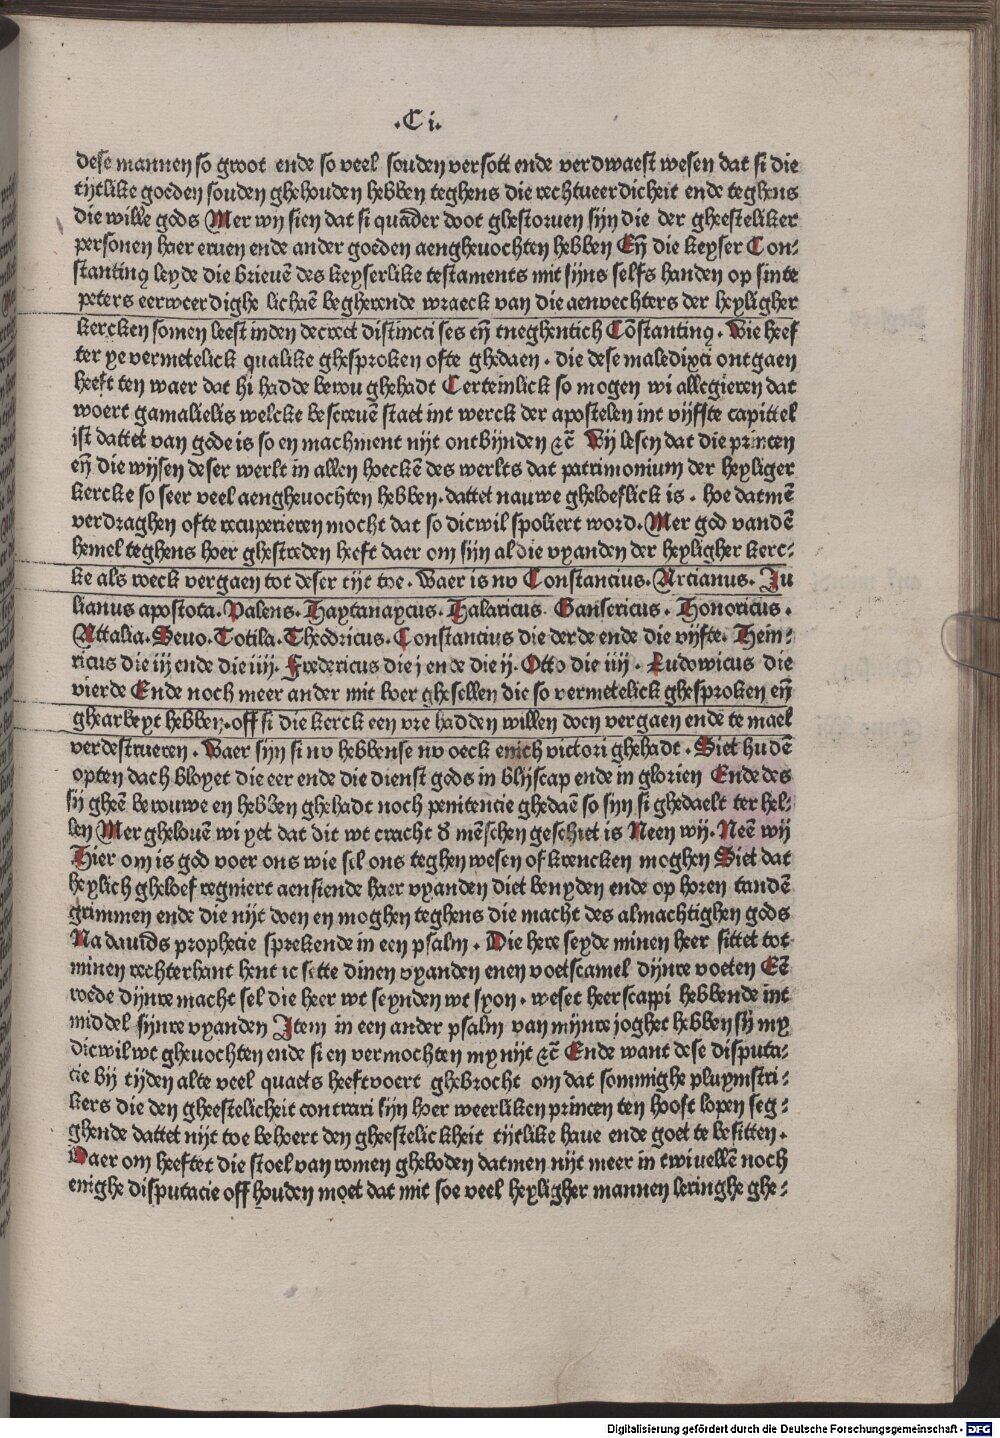 .C i.
dese mannen so groot ende so veel souden versott ende verdwaest wesen dat si die
tijtlike goeden souden ghehouden hebben teghens die rechtueerdicheit ende teghens
die wille gods Mer wy sien dat si quader doot ghestoruen sijn die der gheesteliker
personen haer eruen ende ander goeden aengheuochten hebben Eñ die keyser Con-
stantinꝰ leyde die brieuē des keyserlike testaments mit sijns selfs handen op sinte
peters eerweerdighe lichaē begherende wraeck van die aenvechters der heyligher
kercken somen leest inden decreet distincci ses eñ tneghentich Cōstantinꝰ. Wie heef
ter ye vermetelick qualike ghesproken ofte ghedaen. die dese maledixci ontgaen
heeft ten waer dat hi hadde berou ghehadt Certeinlick so mogen wi allegieren dat
woert gamalielis welcke bescreuē staet int werck der apostelen int vijfste capittel
ist dattet van gode is so en machment nijt ontbijnden ⁊c̄ Wij lesen dat die princen
eñ die wijsen deser werlt in allen hoeckē des werlts dat patrimonium der heyliger
kercke so seer veel aengheuochten hebben. dattet nauwe gheloeflick is. hoe datmē
verdraghen ofte recuperieren mocht dat so dicwil spoliert word. Mer god vandē
hemel teghens hoer ghestreden heeft daer om sijn al die vyanden der heyligher kerc-
ke als roeck vergaen tot deser tijt toe. Waer is nv Constancius. Arcianus. Ju
lianus apostota. Valens. Haytanaycus. Halaricus. Gansericus. Honoricus.
Attalia. Seuo. Totila. Theodricus. Constancius die derde ende die vijfte. Hein-
ricus die iij ende die iiij. Fredericus die j ende die ij. Otto die iiij. Ludowicus die
vierde Ende noch meer ander mit hoer ghesellen die so vermetelick ghesproken eñ
ghearbeyt hebben. off si die kerck een vre hadden willen doen vergaen ende te mael
verdestrueren. Waer sijn si nv hebbense nv oeck enich victori ghehadt. Siet hudē
opten dach bloyet die eer ende die dienst gods in blijscap ende in glorien Ende des
sij gheē berouwe en hebben ghehadt noch penitencie ghedaē so sijn si ghedaelt ter hel-
len Mer ghelouē wi yet dat dit wt cracht 8 mēschen geschiet is Neen wij. Neē wij
Hier om is god voer ons wie sel ons teghen wesen of krencken moghen Siet dat
heylich gheloef regniert aensiende haer vyanden diet benyden ende op horen tandē
grimmen ende die nijt doen en moghen teghens die macht des almachtighen gods
Na dauids prophecie sprekende in een psalm. Die here seyde minen heer sittet tot
minen rechterhant hent ic sette dinen vyanden enen voetscamel dijnre voeten Eē
roede dijnre macht sel die heer wt seynden wt syon. weset heerscappi hebbende int
middel sijnre vyanden Item in een ander psalm van mijnre joghet hebben sij my
dicwil wt gheuochten ende si en vermochten my nijt ⁊c̄ Ende want dese disputa-
cie bij tijden alte veel quaets heeft voert ghebrocht om dat sommighe pluymstri-
kers die den gheestelicheit contrari sijn hoer weerliken princen ten hooft lopen seg-
ghende dattet nijt toe behoert den gheestelickheit tijtlike haue ende goet te besitten.
Daer om heeftet die stoel van romen gheboden datmen nijt meer in twiuellē noch
enighe disputacie off houden moet dat mit soe veel heyligher mannen leringhe ghe-
Digitalisierung gefördert durch die Deutsche Forschungsgemeinschaft - DFG